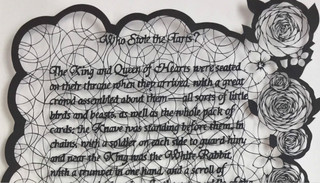 Who Stole the Tarts?
The King and Queen of Hearts were seated
on their throne when they arrived, with a great
crowd assembled about them—all sorts of little
birds and beasts, as well as the whole pack of
cards: the Knave was standing before them, in
chains, with a soldier on each side to guard him;
and near the King was the White Rabbit,
with a trumpet in one hand, and a scroll of